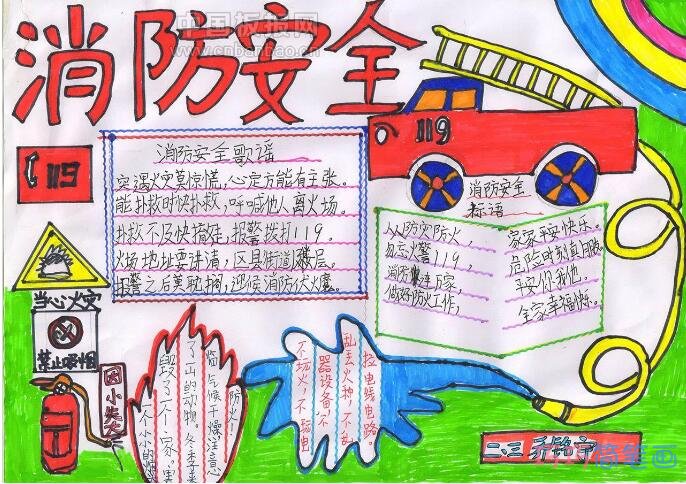 消防安全
中国板报网
www.cnbanbao.cn
119
119
消防安全歌谣
突遇火灾莫惊慌，心定方能有主张。
能扑救时快扑救，呼喊他人离火场。
扑救不及快撤走，报警拨打119。
火场地址要讲清，区县街道楼层。
报警之后莫耽搁，迎候消防伏火魔。
消防安全
标语
人人防灾防火，
勿忘火警119，
消防连万家，
做好防火工作，
家家平安快乐。
平安你我他。
全家幸福快乐。
当心火灾
禁止吸烟
因小失大
防火！
临气候干燥注意
了山的动物。冬季来
毁了一个家。害
一个小小的烟
拉电线电路。
乱丢火种，不乱
器设备，不
不玩火，不
二.三